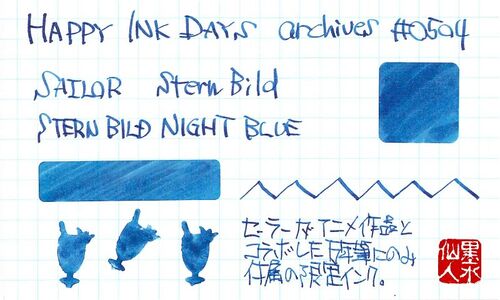 HAPPY INK DAYS archives #0504
SAILOR Stern Bild
STERN BILD NIGHT BLUE
セーラーがアニメ作品と
コラボした万年筆にのみ
付属の限定インク。
墨水
仙人